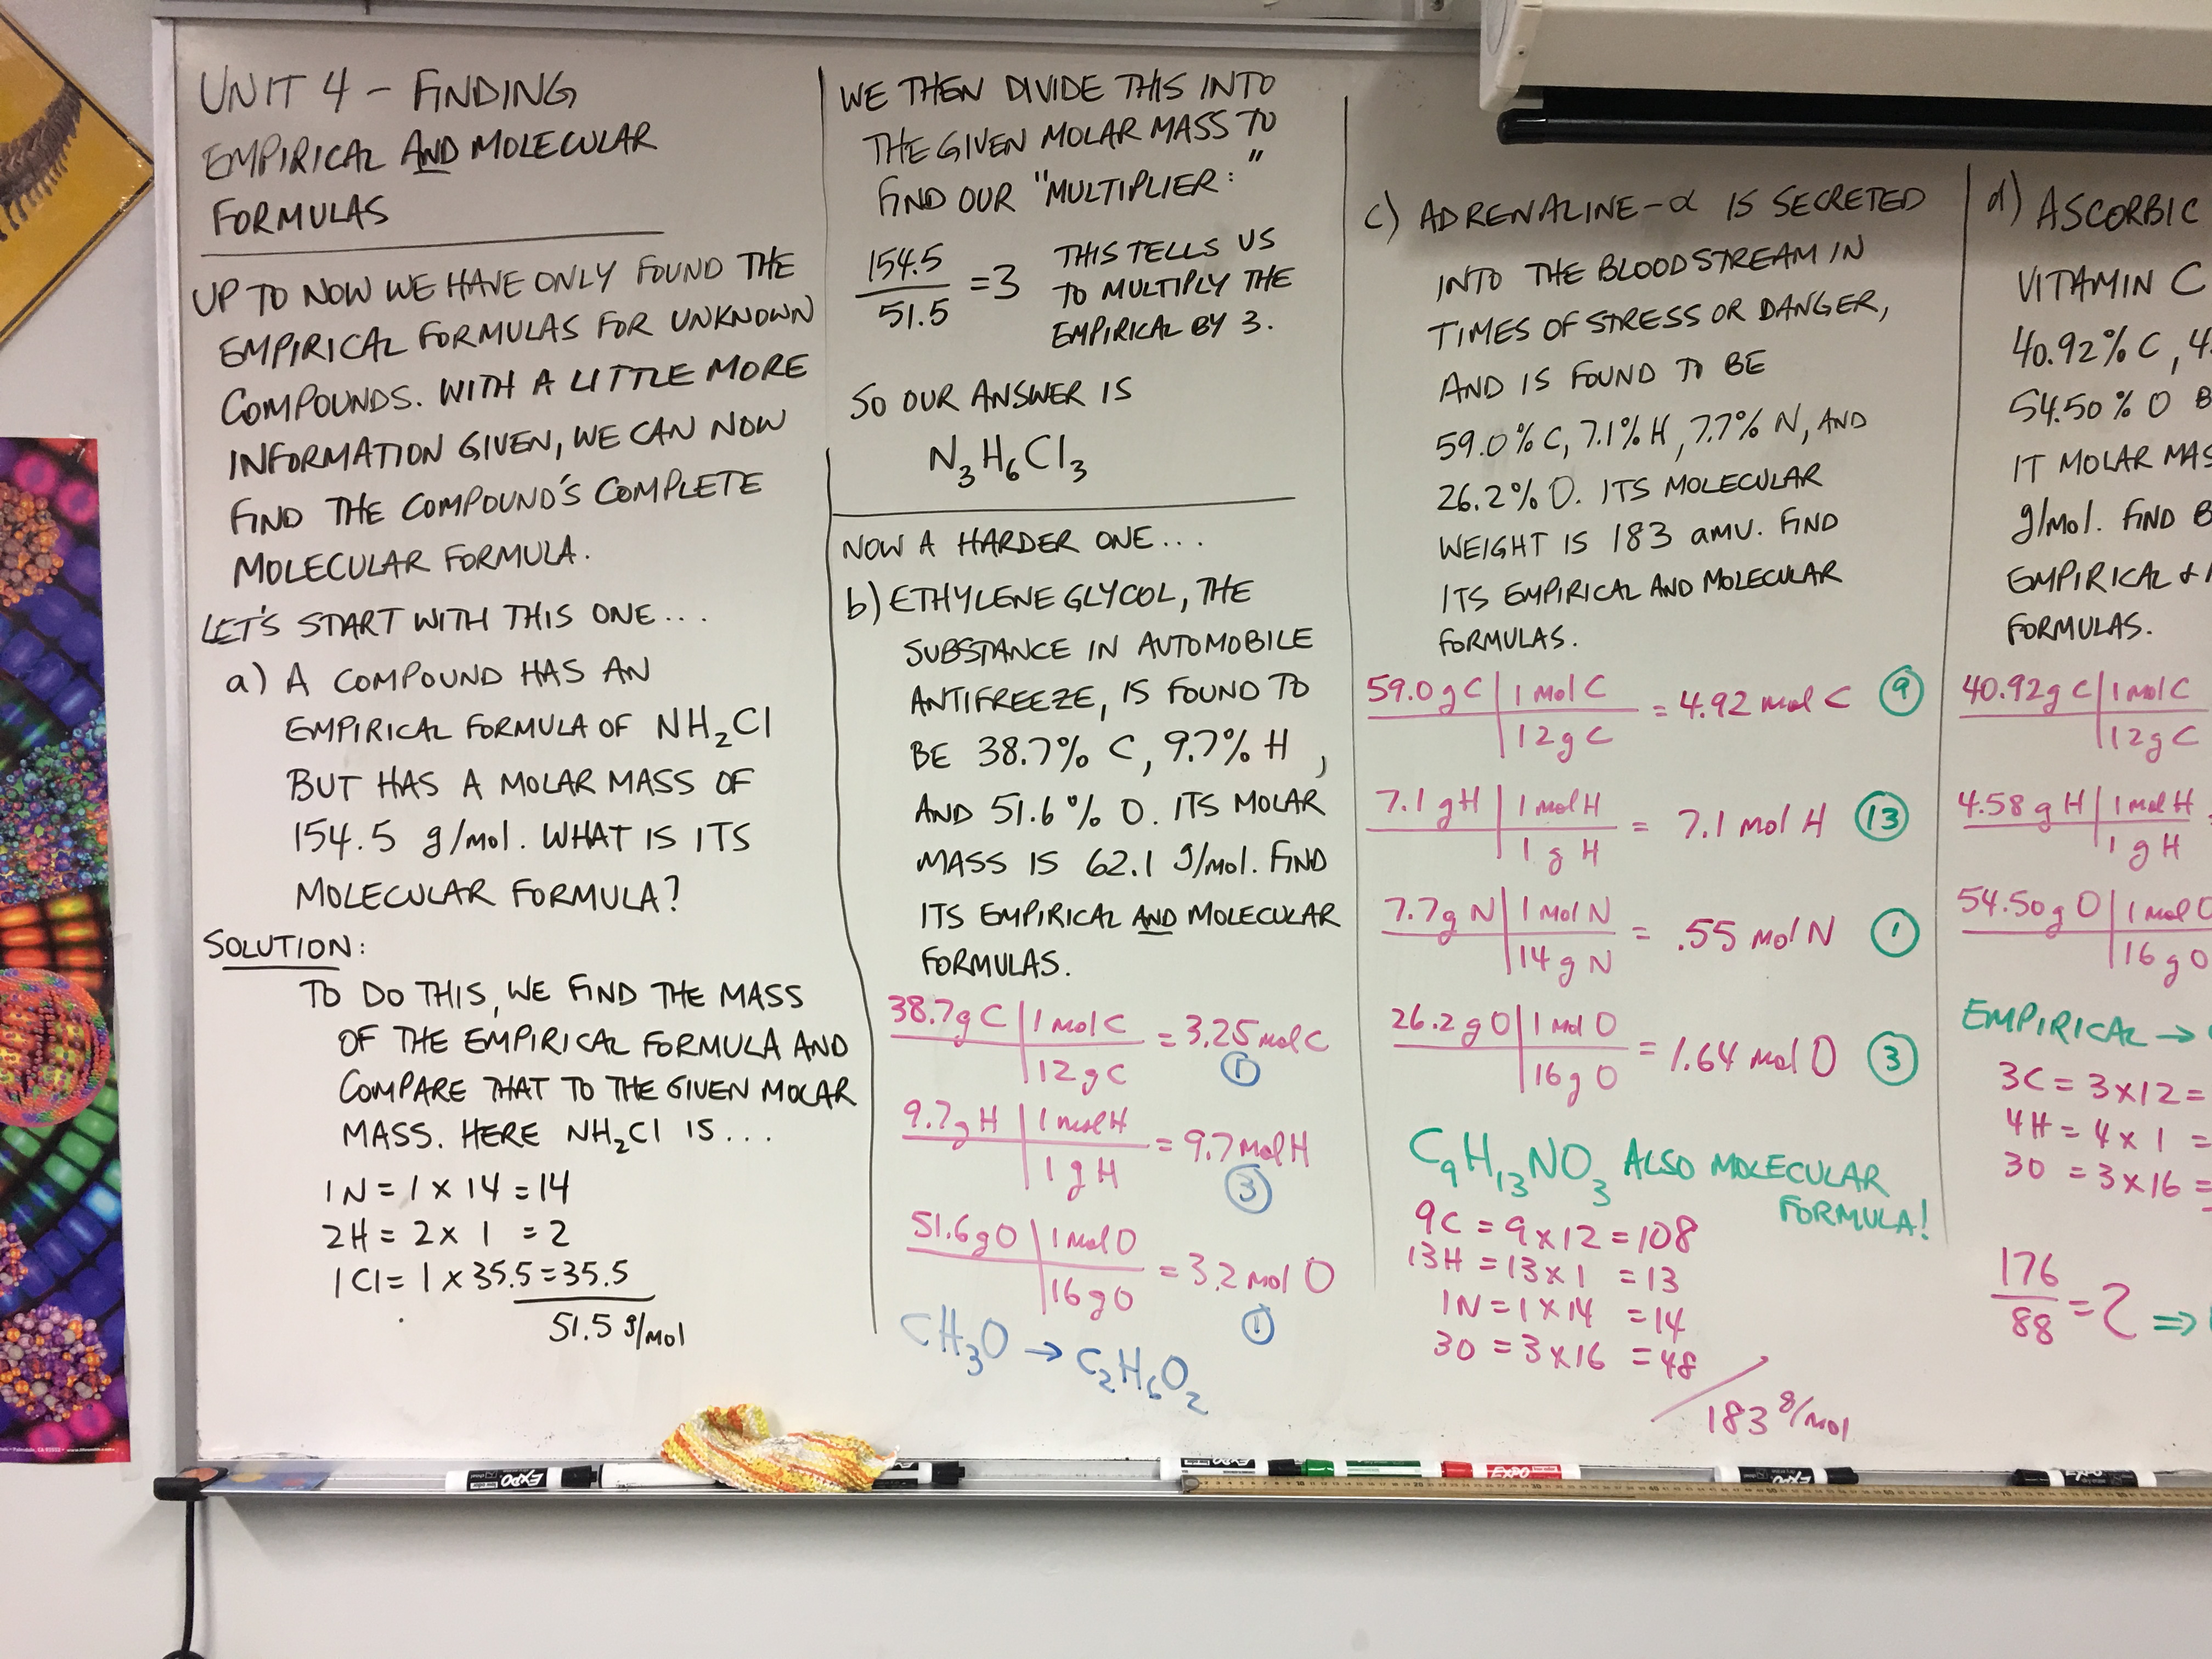 UNIT 4 - FINDING
EMPIRICAL AND MOLECULAR
FORMULAS
UP TO NOW WE HAVE ONLY FOUND THE
EMPIRICAL FORMULAS FOR UNKNOWN
COMPOUNDS. WITH A LITTLE MORE
INFORMATION GIVEN, WE CAN NOW
FIND THE COMPOUND'S COMPLETE
MOLECULAR FORMULA.
LET'S START WITH THIS ONE...
a) A COMPOUND HAS AN
EMPIRICAL FORMULA OF NH₂Cl
BUT HAS A MOLAR MASS OF
154.5 g/mol. WHAT IS ITS
MOLECULAR FORMULA?
SOLUTION:
TO DO THIS, WE FIND THE MASS
OF THE EMPIRICAL FORMULA AND
COMPARE THAT TO THE GIVEN MOLAR
MASS. HERE NH₂Cl IS...
1N = 1 x 14 = 14
2H = 2 x 1 = 2
1Cl = 1 x 35.5 = 35.5
51.5 g/mol
WE THEN DIVIDE THIS INTO
THE GIVEN MOLAR MASS TO
FIND OUR "MULTIPLIER:"
154.5
51.5
= 3
THIS TELLS US
TO MULTIPLY THE
EMPIRICAL BY 3.
SO OUR ANSWER IS
N₃H₆Cl₃
NOW A HARDER ONE...
b) ETHYLENE GLYCOL, THE
SUBSTANCE IN AUTOMOBILE
ANTIFREEZE, IS FOUND TO
BE 38.7% C, 9.7% H,
AND 51.6% O. ITS MOLAR
MASS IS 62.1 g/mol. FIND
ITS EMPIRICAL AND MOLECULAR
FORMULAS.
38.7g C | 1 mol C = 3.25 mol C
12 g C
1
9.7g H | 1 mol H = 9.7 mol H
1 g H
3
51.6 g O | 1 mol O = 3.2 mol O
16 g O
1
CH₃O → C₂H₆O₂
c) ADRENALINE-α IS SECRETED
INTO THE BLOODSTREAM IN
TIMES OF STRESS OR DANGER,
AND IS FOUND TO BE
59.0% C, 7.1% H, 7.7% N, AND
26.2% O. ITS MOLECULAR
WEIGHT IS 183 amu. FIND
ITS EMPIRICAL AND MOLECULAR
FORMULAS.
59.0 g C | 1 mol C = 4.92 mol C 9
12 g C
7.1 g H | 1 mol H = 7.1 mol H 13
1 g H
7.7g N | 1 mol N = .55 mol N 1
14 g N
26.2 g O | 1 mol O = 1.64 mol O 3
16 g O
C₉H₁₃NO₃ ALSO MOLECULAR
FORMULA!
9C = 9 x 12 = 108
13H = 13 x 1 = 13
1N = 1 x 14 = 14
3O = 3 x 16 = 48
183 g/mol
d) ASCORBIC
VITAMIN C
40.92% C, 4.
54.50% O
IT MOLAR MAS
g/mol. FIND B
EMPIRICAL +
FORMULAS.
40.92g C | 1 mol C
12 g C
4.58 g H | 1 mol H
1 g H
54.50g O | 1 mol O
16 g O
EMPIRICAL →
3C = 3 x 12 =
4H = 4 x 1 =
3O = 3 x 16 =
176
88
= 2 ⇒
EXPO
EXPO
EXPO
EXPO